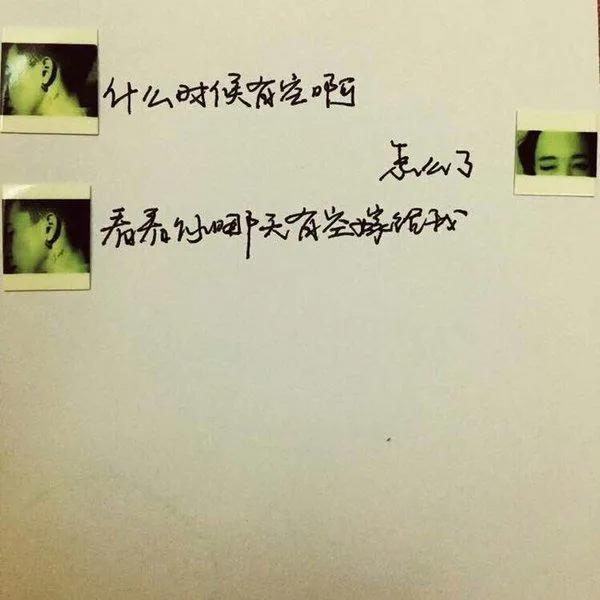 什么时候有空啊
怎么了
看看你哪天有空嫁给我